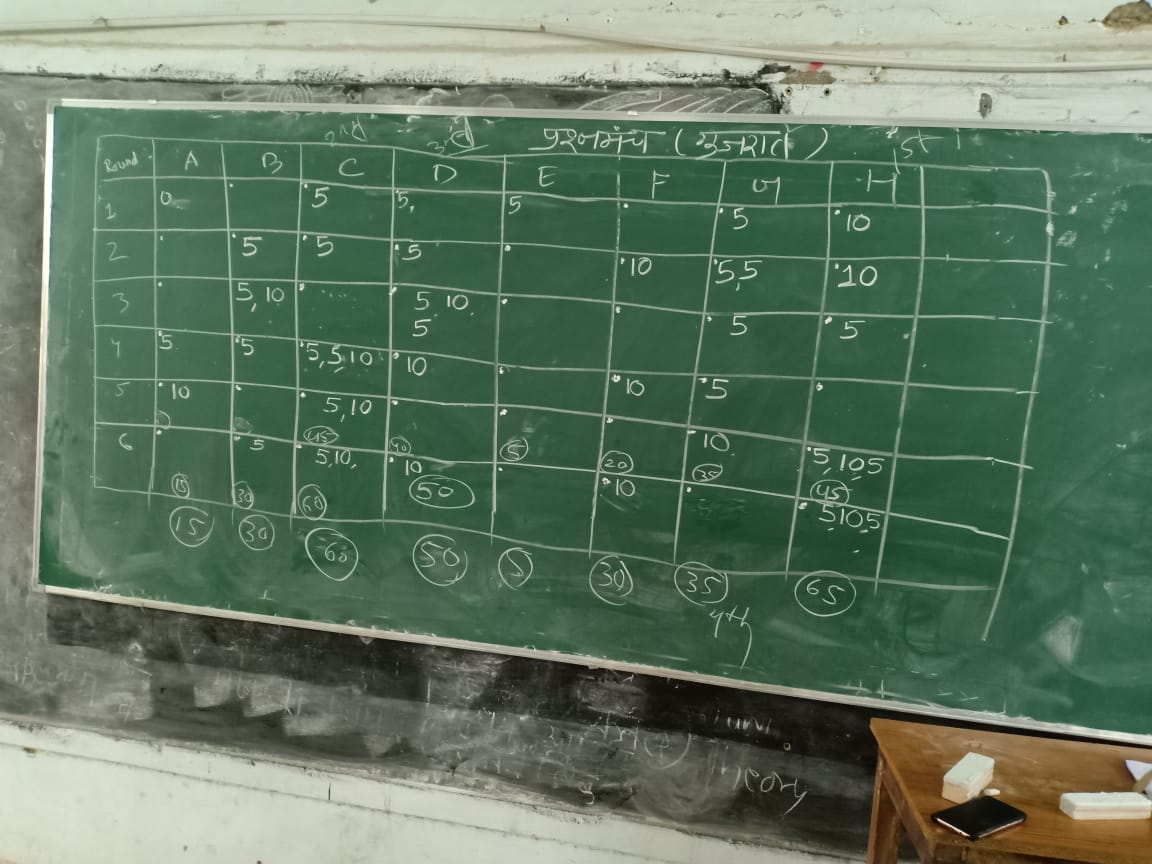 2nd 3rd प्रश्नमंच (गुजरात) 1st
Round A B C D E F G H
1 0 5 5, 5 5 10
2 5 5 5 10 5,5 10
3 5,10 5 10, 5 5
5
4 5 5 5,5,10 10 10 5
5 10 5,10 10 5,105
45 40 5 20 35 45
6 5 5,10, 10 10 5105
15 30 60 50
15 30 60 50 5 30 35 65
4th
Theory